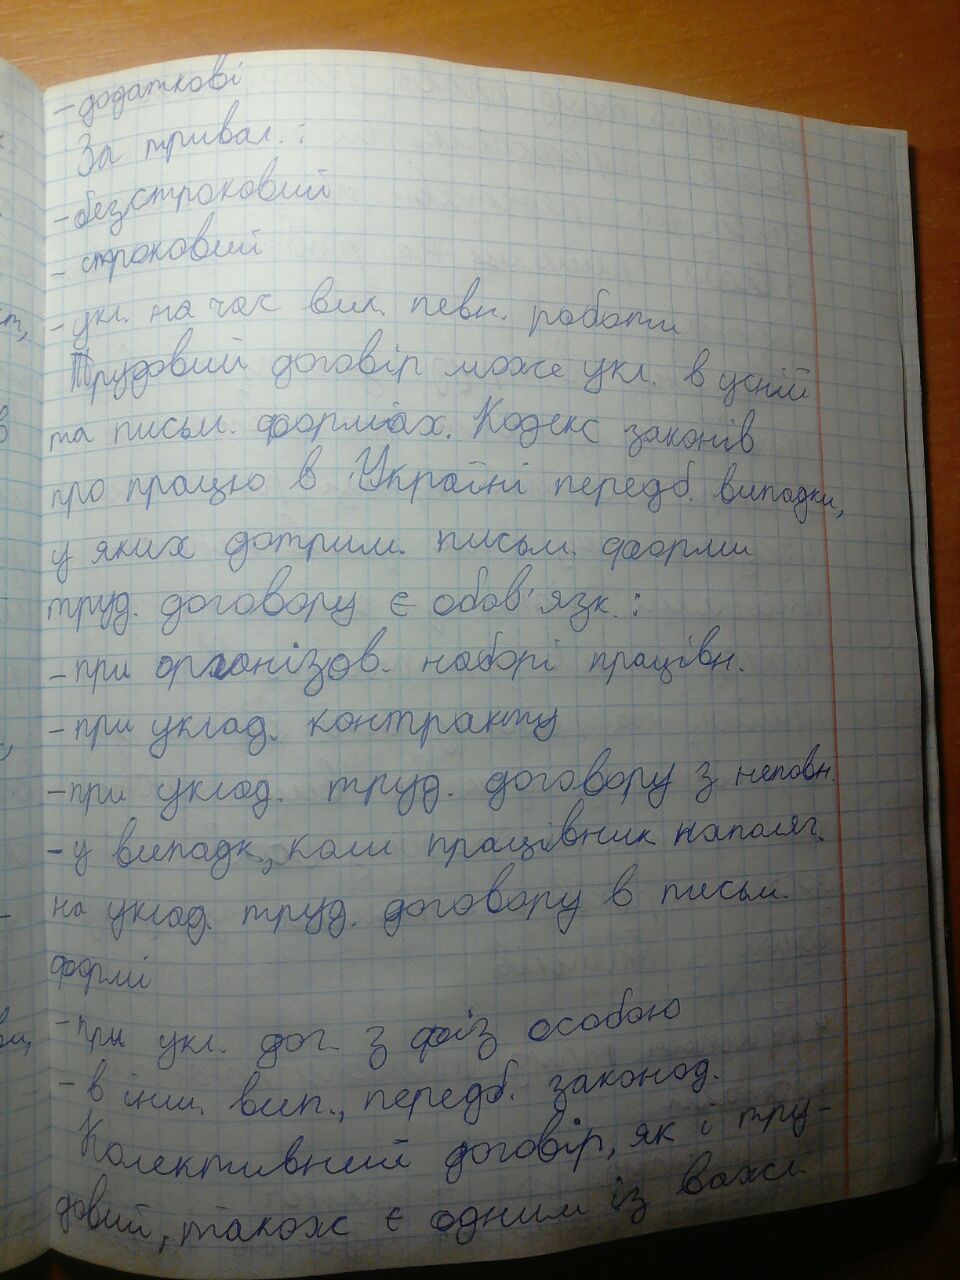 - додаткові
За тривал. :
- безстроковий
- строковий
- укл. на час вик. певн. роботи
Трудовий договір може укл. в усній
та письм. формах. Кодекс законів
про працю в Україні передб. випадки,
у яких дотрим. письм. форми
труд. договору є обов'язк. :
- при організов. наборі працівн.
- при уклад. контракту
- при уклад. труд. договору з неповн.
- у випадк., коли працівник наполяг.
на уклад. труд. договору в письм.
формі
- при укл. дог. з фіз особою
- в інш. вип., передб. законод.
Колективний договір, як і тру-
довий, також є одним із важл.